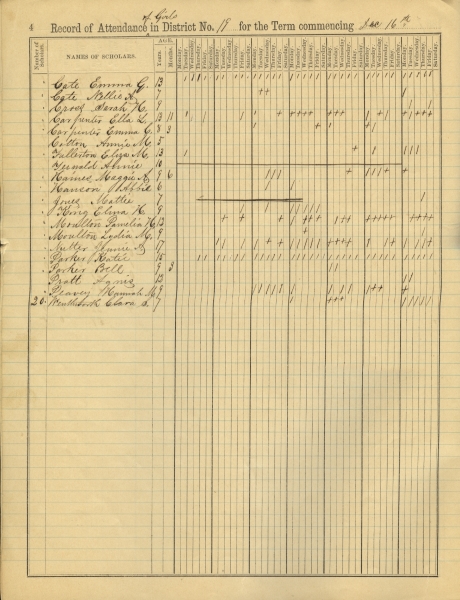 of Girls
4 Record of Attendance in District No. 19 for the Term commencing Dec 16th
AGE.
Number of Scholars.
NAMES OF SCHOLARS.
Years.
Months.
Monday
Tuesday
Wednesday
Thursday
Friday
Cate Emma G. 13
Cate Nellie A. 7
Cross Sarah H. 9
Carpenter Ella L. 13 11
Carpenter Emma G. 8 3
Cotton Annie M. 5
Fullerton Eliza M. 13
Annie 10
Haines Maggie A. 9 6
Hanson Abbie 6
Jones Mattie 7
King Elma H. 9
Moulton Pamelia H. 13
Moulton Lydia M. 8
Nutter Annie M. 17
Parker Katie 15
Parker Bell 9 3
Pratt Agnes 13
Peavey Hannah M. 9
20. Wentworth Clara S. 7